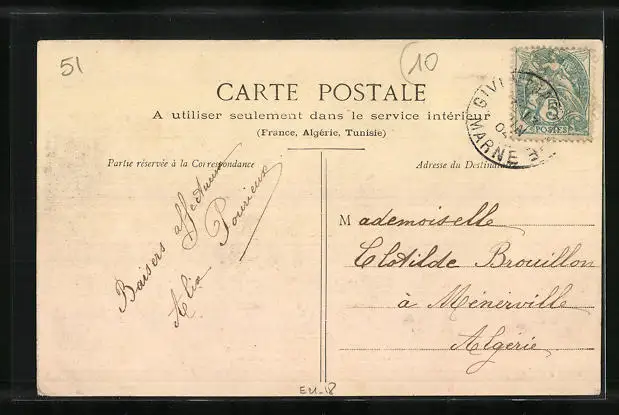 51
10
CARTE POSTALE
A utiliser seulement dans le service intérieur
(France, Algérie, Tunisie)
Partie réservée à la Correspondance
Adresse du Destinataire
5
POSTES
MARNE
04
Baisers affectueux
Alix
Mademoiselle
Clotilde Brouillon
à Ménerville
Algérie.
EU-18